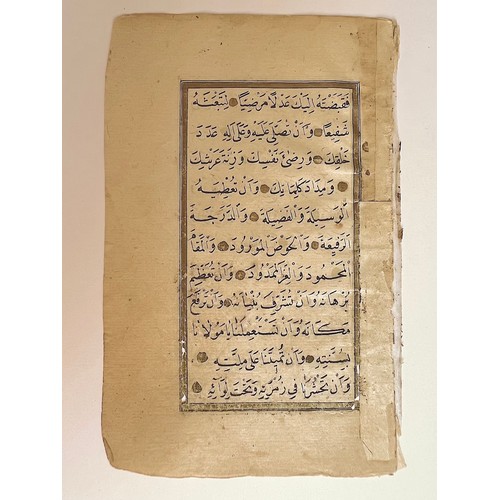 فَقَبَضْتَهُ اِلَيْكَ عَدْلًا مَرْضِيًّا لِتَبْعَثَهُ
شَفِيعًا وَاَنْ تُصَلِّيَ عَلَيْهِ وَعَلٰى اٰلِهِ عَدَدَ
خَلْقِكَ وَرِضٰى نَفْسِكَ وَزِنَةَ عَرْشِكَ
وَمِدَادَ كَلِمَاتِكَ وَاَنْ تُعْطِيَهُ
الْوَسِيلَةَ وَالْفَضِيلَةَ وَالدَّرَجَةَ
الرَّفِيعَةَ وَالْحَوْضَ الْمَوْرُودَ وَالْمَقَامَ
الْمَحْمُودَ وَالْعِزَّ الْمَمْدُودَ وَاَنْ تُعَظِّمَ
بُرْهَانَهُ وَاَنْ تُشَرِّفَ بُنْيَانَهُ وَاَنْ تَرْفَعَ
مَكَانَهُ وَاَنْ تَسْتَعْمِلَنَا يَا مَوْلَانَا
بِسُنَّتِهِ وَاَنْ تُمِيتَنَا عَلٰى مِلَّتِهِ
وَاَنْ تَحْشُرَنَا فِي زُمْرَتِهِ وَتَحْتَ لِوَائِهِ